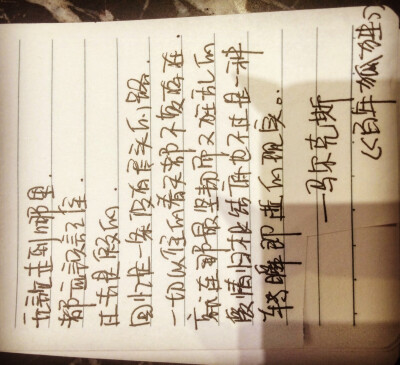 无论走到哪里.
都应该记住.
过去是假的.
回忆是一条没有尽头的路.
一切以往的春天都不复存在.
就连那最坚韧而又狂乱的
爱情归根结底也不过是一种
转瞬即逝的现实。
—马尔克斯
《百年孤独》